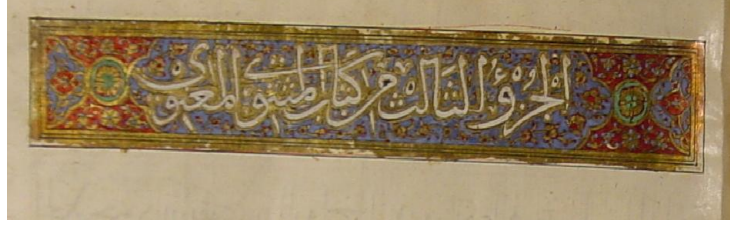 الجزؤ الثالث من كتاب المثنوي المعنوي